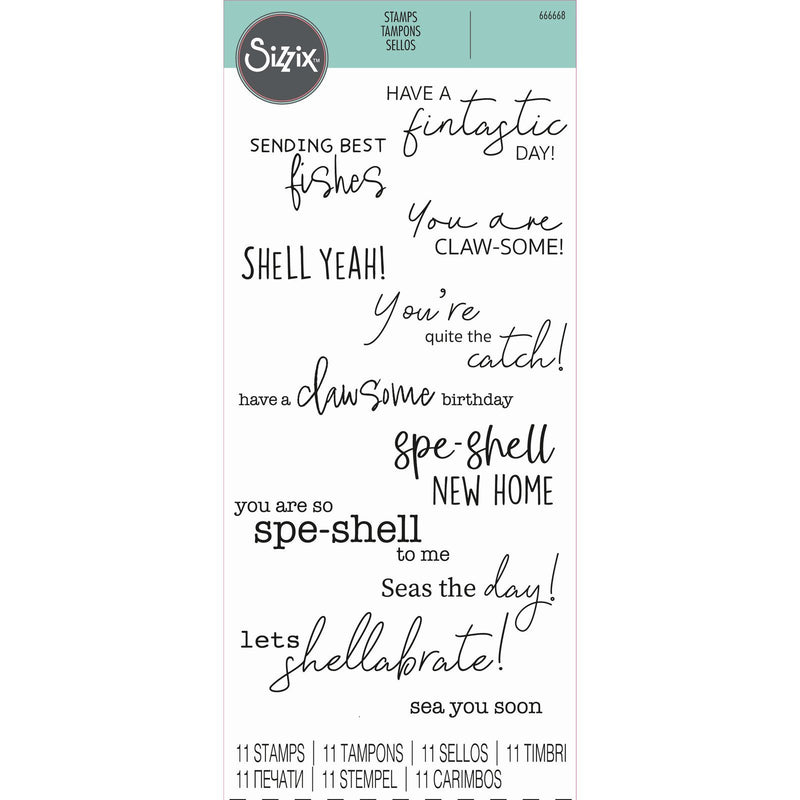 Sizzix™
STAMPS
TAMPONS
SELLOS
666668
HAVE A
fintastic
DAY!
SENDING BEST
fishes
You are
CLAW-SOME!
SHELL YEAH!
You're
quite the
catch!
have a clawsome birthday
spe-shell
NEW HOME
you are so
spe-shell
to me
Seas the day!
lets shellabrate!
sea you soon
11 STAMPS | 11 TAMPONS | 11 SELLOS | 11 TIMBRI
11 ПЕЧАТИ | 11 STEMPEL | 11 CARIMBOS